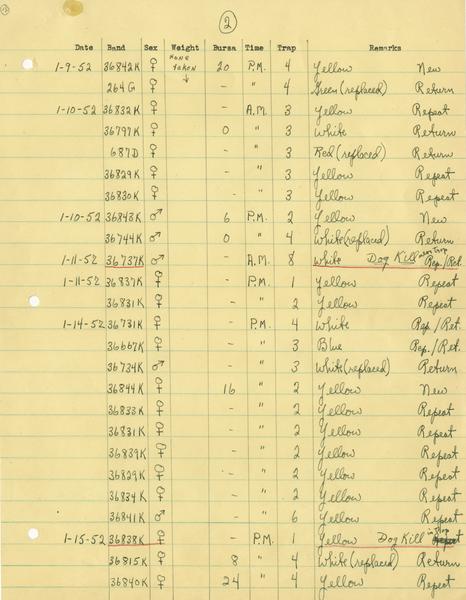 2
Date Band Sex Weight Bursa Time Trap Remarks
1-9-52 36842K ♀ none taken ↓ 20 P.M. 4 Yellow New
264G ♀ - " 4 Green (replaced) Return
1-10-52 36832K ♀ - A.M. 3 Yellow Repeat
36797K ♀ 0 " 3 White Return
687D ♀ - " 3 Red (replaced) Return
36829K ♀ - " 3 Yellow Repeat
36830K ♀ - " 3 Yellow Repeat
1-10-52 36843K ♂ 6 P.M. 2 Yellow New
36744K ♂ 0 " 4 White (replaced) Return
1-11-52 36737K ♂ - A.M. 8 White Dog Kill in Trap Rep./Ret.
1-11-52 36837K ♀ - P.M. 1 Yellow Repeat
36831K ♀ - " 2 Yellow Repeat
1-14-52 36731K ♀ - P.M. 4 White Rep./Ret.
36667K ♀ - " 3 Blue Rep./Ret.
36734K ♂ - " 3 White (replaced) Return
36844K ♀ 16 " 2 Yellow New
36833K ♀ - " 2 Yellow Repeat
36831K ♀ - " 2 Yellow Repeat
36839K ♀ - " 2 Yellow Repeat
36829K ♀ - " 2 Yellow Repeat
36834K ♀ - " 2 Yellow Repeat
36841K ♂ - " 6 Yellow Repeat
1-15-52 36838K ♀ - P.M. 1 Yellow Dog Kill in Trap
36815K ♀ 8 " 4 White (replaced) Return
36840K ♀ 24 " 4 Yellow Repeat